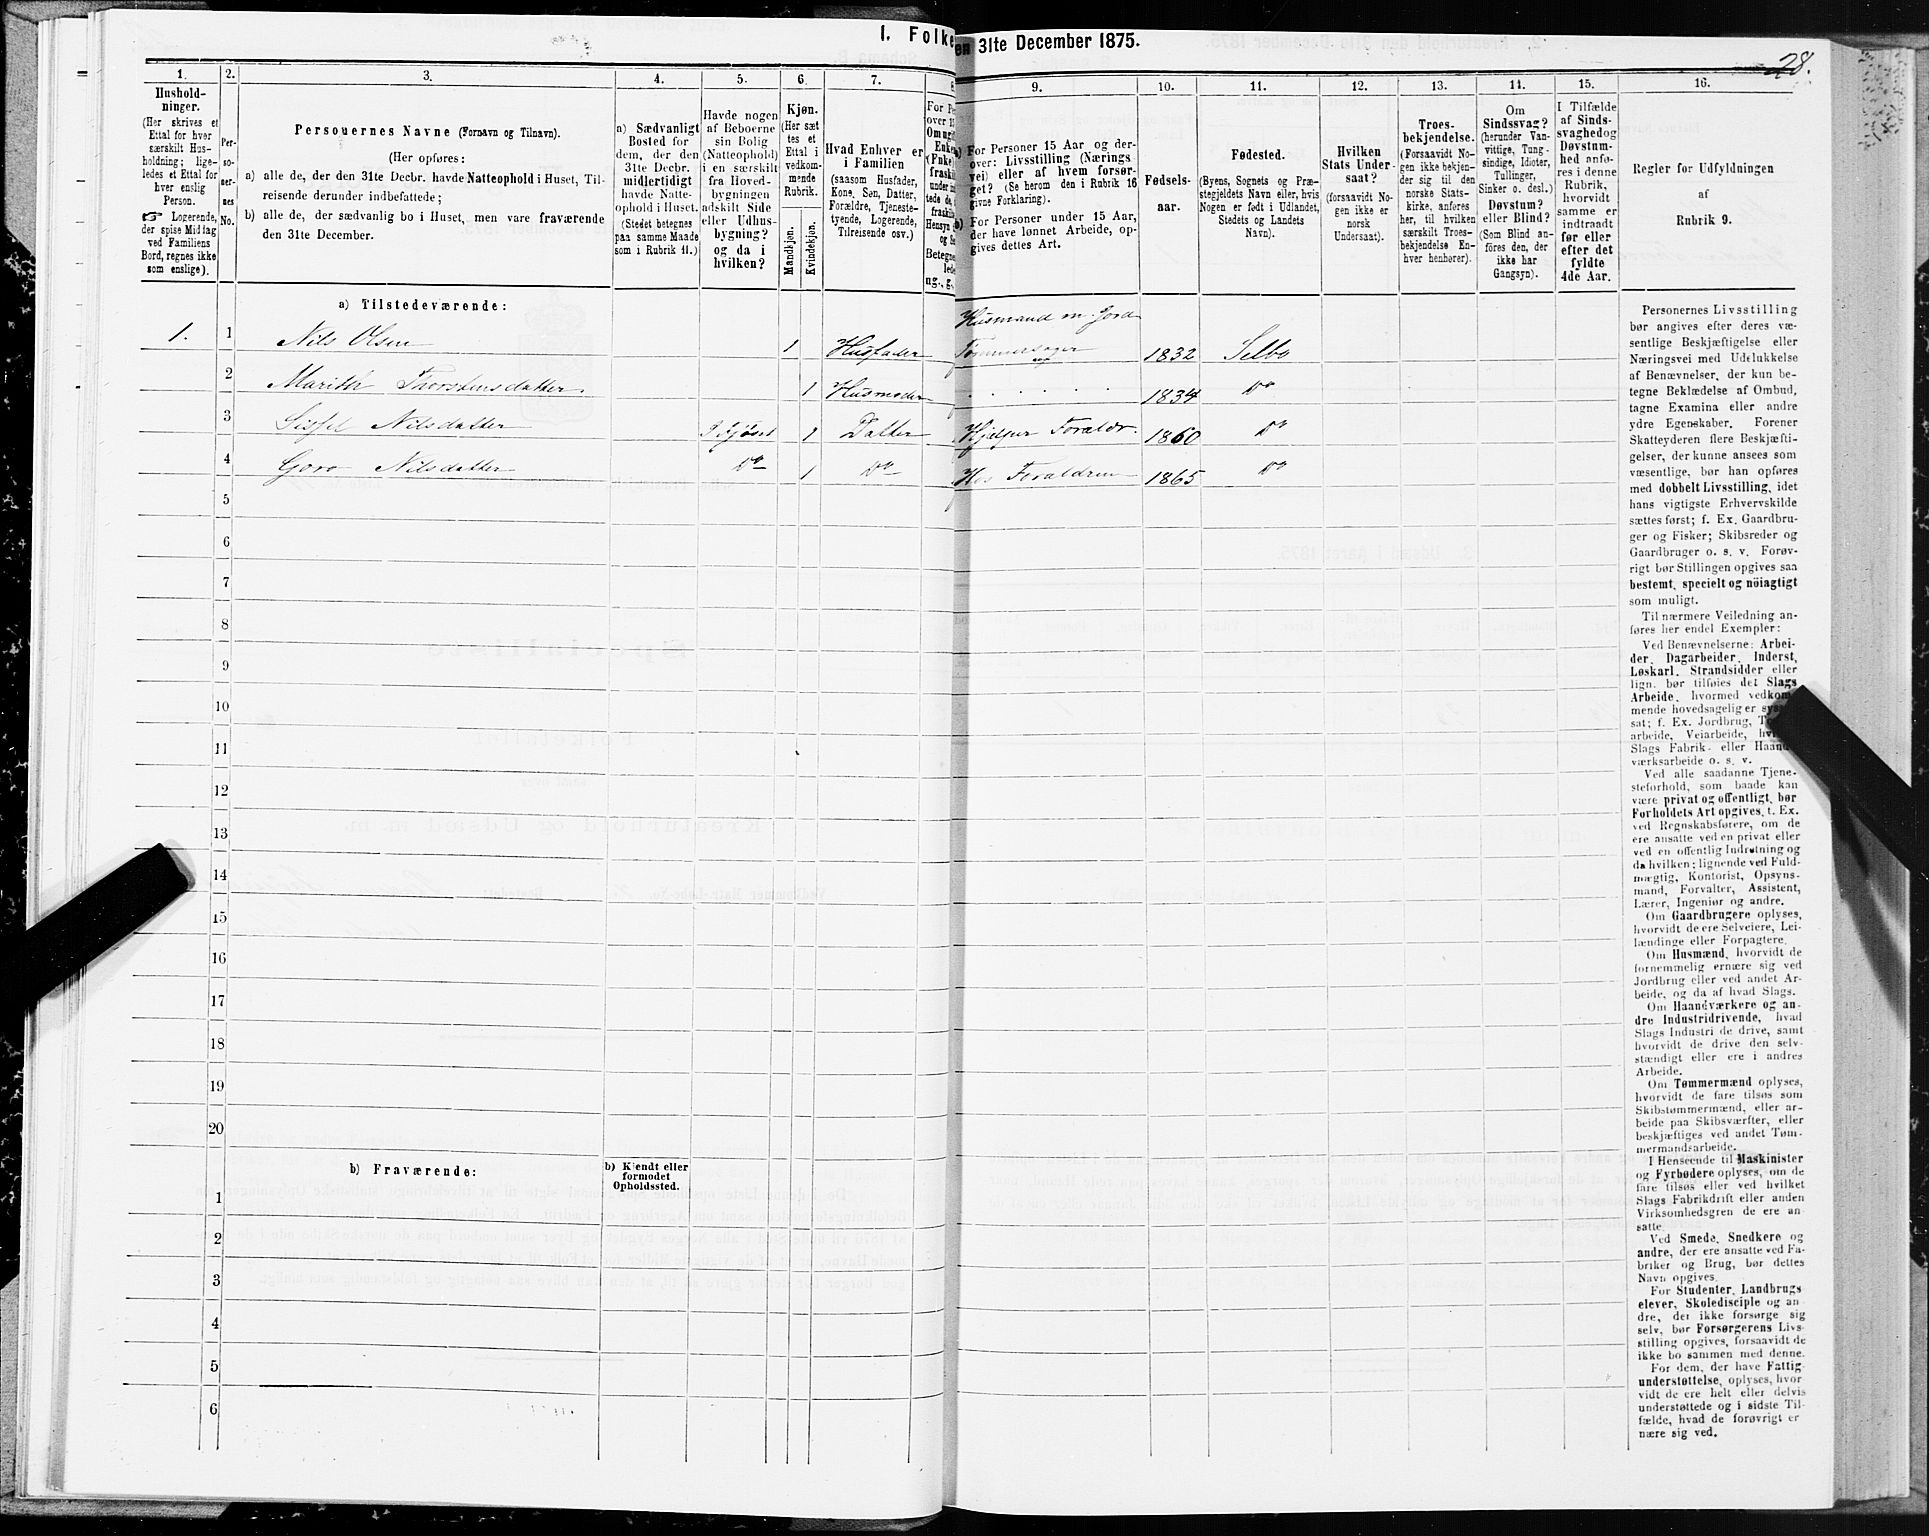 1. Folke
en 31te December 1875.
28.
1. 2. 3. 4. 5. 6. 7.
9. 10. 11. 12. 13. 14. 15. 16.
Hushold-
ninger.
(Her skrives et
Ettal for hver
særskilt Hus-
holdning; lige-
ledes et Ettal for
hver enslig
Person.
☞ Logerende,
der spise Middag
ved Familiens
Bord, regnes ikke
som enslige).
Per-
so-
ner-
nes
No.
Personernes Navne (Fornavn og Tilnavn).
(Her opføres:
a) alle de, der den 31te Decbr. havde Natteophold i Huset, Til-
reisende derunder indbefattede;
b) alle de, der sædvanlig bo i Huset, men vare fraværende
den 31te December.
a) Sædvanligt
Bosted for
dem, der den
31te Decbr.
midlertidigt
havde Natte-
ophold i Huset.
(Stedet betegnes
paa samme Maade
som i Rubrik 11.)
Havde nogen
af Beboerne
sin Bolig
(Natteophold)
i en særskilt
fra Hoved-
bygningen
adskilt Side
eller Udhus-
bygning?
og da i
hvilken?
Kjøn.
(Her sæt
tes et
Ettal i
vedkom-
mende
Rubrik.
Mandkjøn.
Kvindekjøn.
Hvad Enhver er
i Familien
(saasom Husfader,
Kone, Søn, Datter,
Forældre, Tjeneste-
tyende, Logerende,
Tilreisende osv.)
a) For Personer 15 Aar og der-
over: Livsstilling (Nærings
vei) eller af hvem forsør-
get? (Se herom den i Rubrik 16
givne Forklaring).
b) For Personer under 15 Aar,
der have lønnet Arbeide, op-
gives dettes Art.
Fødsels-
aar.
Fødested.
(Byens, Sognets og Præ-
stegjeldets Navn eller, hvis
Nogen er født i Udlandet,
Stedets og Landets
Navn).
Hvilken
Stats Under-
saat?
(forsaavidt No-
gen ikke er
norsk
Undersaat).
Troes-
bekjendelse.
(Forsaavidt No-
gen ikke bekjen-
der sig til den
norske Stats-
kirke, anføres
her, til hvilken
særskilt Troes-
bekjendelse En-
hver henhører).
Om
Sindssvag?
(herunder Van-
vittige, Tung-
sindige, Idioter,
Tullinger,
Sinker o. desl.)
Døvstum?
eller Blind?
(Som Blind an-
føres den, der
ikke har
Gangsyn).
I Tilfælde
af Sinds-
svaghedog
Døvstum-
hed anfø-
res i denne
Rubrik,
hvorvidt
samme er
indtraadt
før eller
efter det
fyldte
4de Aar.
Regler for Udfyldningen
af
Rubrik 9.
a) Tilstedeværende:
Husmand m. Jord
1. 1 Nils Olsen 1 Husfader Tømmersager 1832 Selbo
2 Marith Thorstensdatter 1 Husmoder 1834 Do
3 Sissel Nilsdatter I Fjøset 1 Datter Hjelper Foraldr. 1860 Do
4 Goro Nilsdatter Do 1 Do Hos Foraldren 1865 Do
5
6
7
8
9
10
11
12
13
14
15
16
17
18
19
20
b) Fraværende:
b) Kjendt eller
formodet
Opholdssted.
1
2
3
4
5
6
Personernes Livsstilling
bør angives efter deres væ-
sentlige Beskjæftigelse eller
Næringsvei med Udelukkelse
af Benævnelser, der kun be-
tegne Beklædelse af Ombud,
tagne Examina eller andre
ydre Egenskaber. Forener
Skatteyderen flere Beskjæfti-
gelser, der kunne ansees som
væsentlige, bør han opføres
med dobbelt Livsstilling, idet
hans vigtigste Erhvervskilde
sættes først; f. Ex. Gaardbru-
ger og Fisker; Skibsreder og
Gaardbruger o. s. v. Forøv-
rigt bør Stillingen opgives saa
bestemt, specielt og nöiagtigt
som muligt.
Til nærmere Veiledning an-
føres her endel Exempler:
Ved Benævnelserne: Arbei-
der, Dagarbeider, Inderst,
Løskarl, Strandsidder eller
lign. bør tilføies det Slags
Arbeide, hvormed vedkom-
mende hovedsagelig er
sat; f. Ex. Jordbrug,
arbeide, Veiarbeide,
Slags Fabrik- eller Haand-
værksarbeide o. s. v.
Ved alle saadanne Tjene-
steforhold, som baade kan
være privat og offentligt, bør
Forholdets Art opgives, t. Ex.
ved Regnskabsførere, om de
ere ansatte ved en privat eller
ved en offentlig Indretning og
da hvilken; lignende ved Fuld-
mægtig, Kontorist, Opsyns-
mand, Forvalter, Assistent,
Lærer, Ingeniør og andre.
Om Gaardbrugere oplyses,
hvorvidt de ere Selveiere, Lei-
lændinge eller Forpagtere.
Om Husmænd, hvorvidt de
fornemmelig ernære sig ved
Jordbrug eller ved andet Ar-
beide, og da af hvad Slags.
Om Haandværkere og an-
dre Industridrivende, hvad
Slags Industri de drive, samt
hvorvidt de drive den selv-
stændigt eller ere i andres
Arbeide.
Om Tømmermænd oplyses,
hvorvidt de fare tilsøs som
Skibstømmermænd, eller ar-
beide paa Skibsværfter, eller
beskjæftiges ved andet Tøm-
mermandsarbeide.
I Henseende til Maskinister
og Fyrbødere oplyses, om de
fare tilsøs eller ved hvilket
Slags Fabrikdrift eller anden
Virksomhedsgren de ere an-
satte.
Ved Smede, Snedkere og
andre, der ere ansatte ved Fa-
briker og Brug, bør dettes
Navn opgives.
For Studenter, Landbrugs
elever, Skoledisciple og an-
dre, der ikke forsørge sig
selv, bør Forsørgerens Livs-
stilling opgives, forsaavidt de
ikke bo sammen med denne.
For dem, der have Fattig-
understøttelse, oplyses, hvor
vidt de ere helt eller delvis
understøttede og i sidste Til-
fælde, hvad de forøvrigt er
nære sig ved.